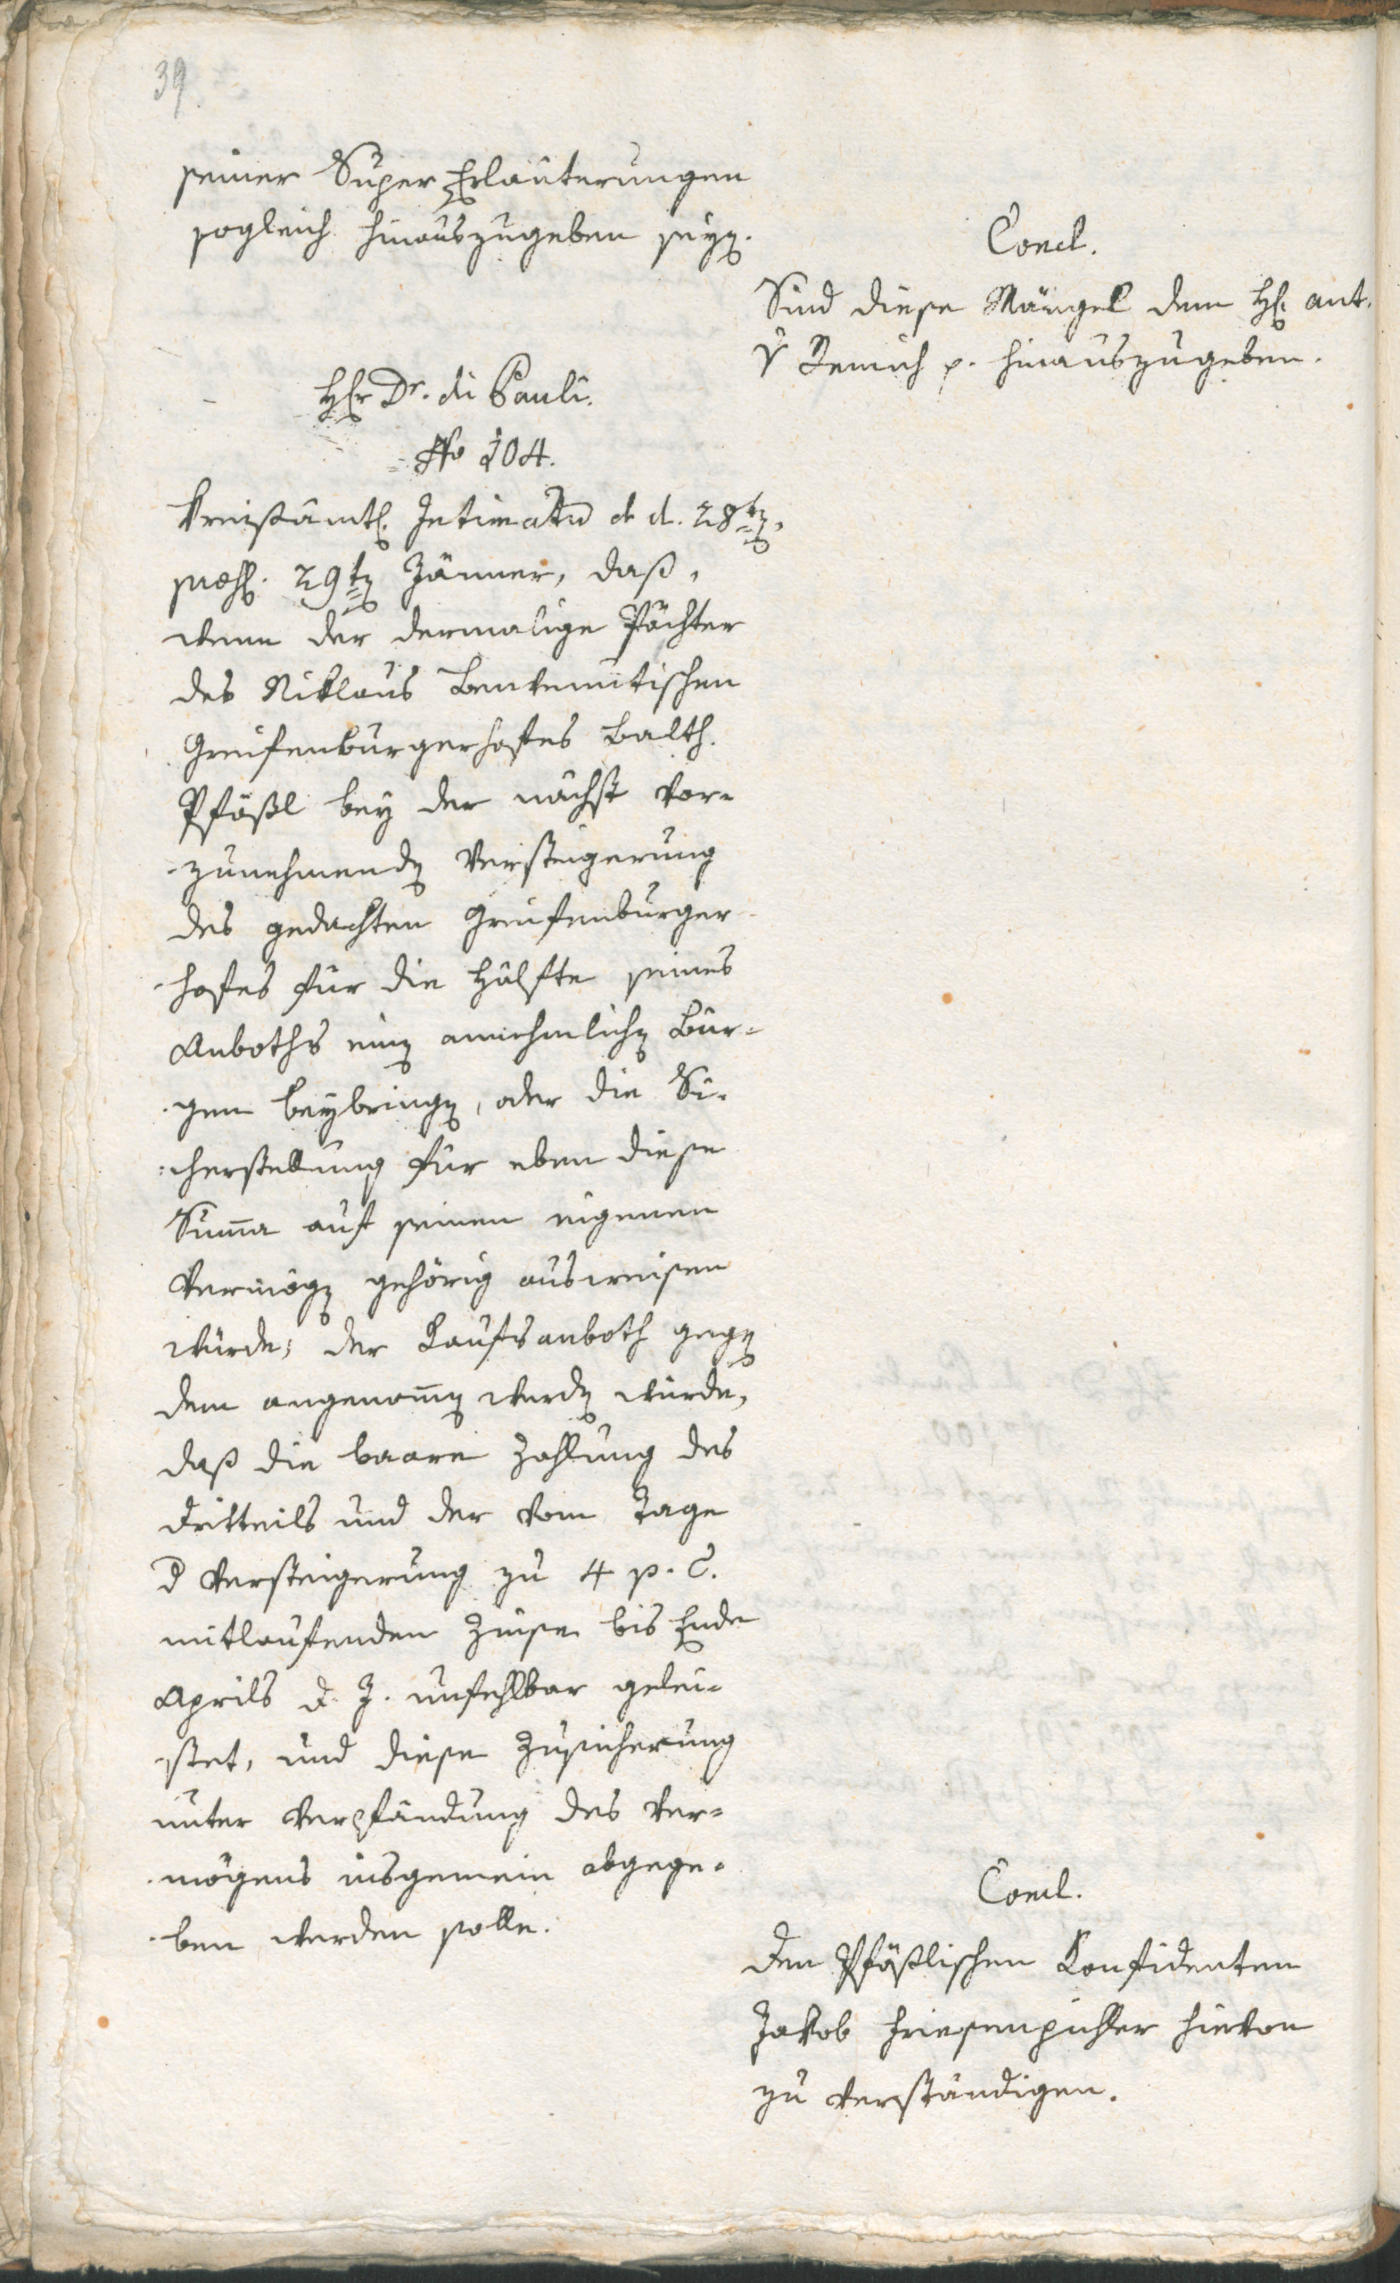 39.
seiner Super Erläuterungen
sogleich hinauszugeben seyen.
Concl.
Sind diese Mängel dem H. ant.
v Remich p. hinauszugeben.
Hr Dr. di Pauli.
No 104.
Kreißämtl. Intimatu d d. 28ten,
praes. 29ten Jänner, daß,
wenn der dermalige Pächter
des Niklaus Benvenutischen
Greifenburgerhofes Balth.
Pfößl bey der nächst vor-
zunehmenden Versteigerung
des gedachten Greifenburger
hofes für die Hälfte seines
Anboths einen annehmlichen Bür-
gen beybringen, oder die Si-
cherstellung für eben diese
Summa auf seinen eigenen
Vermögen gehörig ausweisen
würde; der Kaufsanboth gegen
dem angenommen werden würde,
daß die baare Zahlung des
Drittheils und der vom Tage
d Versteigerung zu 4 p. C.
mitlaufenden Zinse bis Ende
Aprils d. J. unfehlbar gelei-
stet, und diese Zusicherung
unter Verpfändung des Ver-
mögens insgemein abgege-
ben werden solle.
Concl.
Den Pfößlischen Konfidenten
Jakob Friesenpichler hievon
zu verständigen.